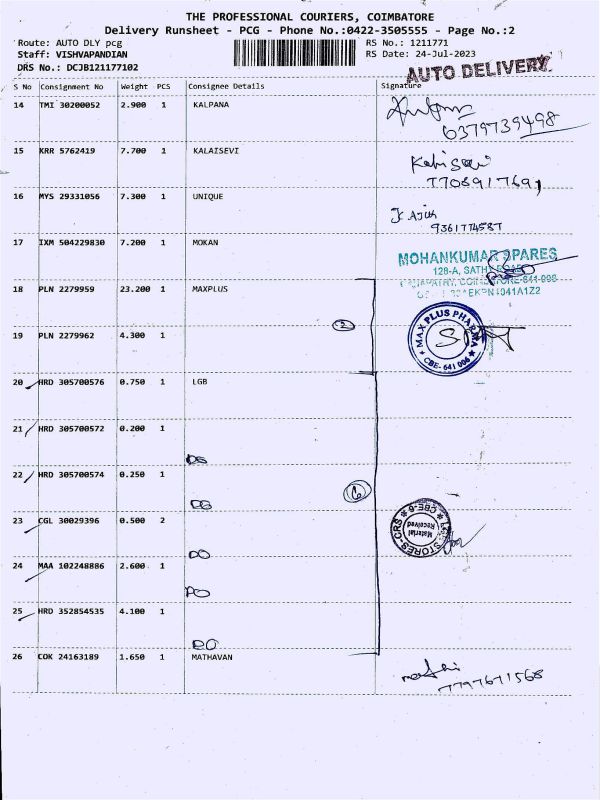 THE PROFESSIONAL COURIERS, COIMBATORE
Delivery Runsheet - PCG - Phone No.:0422-3505555 - Page No.:2
Route: AUTO DLY pcg RS No.: 1211771
Staff: VISHVAPANDIAN RS Date: 24-Jul-2023
DRS No.: DCJB121177102
AUTO DELIVERY
S No Consignment No Weight PCS Consignee Details Signature
14 TMI 30200052 2.900 1 KALPANA
6379739498
15 KRR 5762419 7.700 1 KALAISEVI
7708917691
16 MYS 29331056 7.300 1 UNIQUE
9361774587
17 IXM 504229830 7.200 1 MOKAN
MOHANKUMAR SPARES
128-A, SATHY ROAD
18 PLN 2279959 23.200 1 MAXPLUS
MAX PLUS PHARMA
CBE- 641 006
19 PLN 2279962 4.300 1
2
20 HRD 305700576 0.750 1 LGB
21 HRD 305700572 0.200 1
22 HRD 305700574 0.250 1
6
23 CGL 30029396 0.500 2
STORES-CRS CBE-6
Material
Received
DO
24 MAA 102248886 2.600 1
25 HRD 352854535 4.100 1
DO
26 COK 24163189 1.650 1 MATHAVAN
7797671568